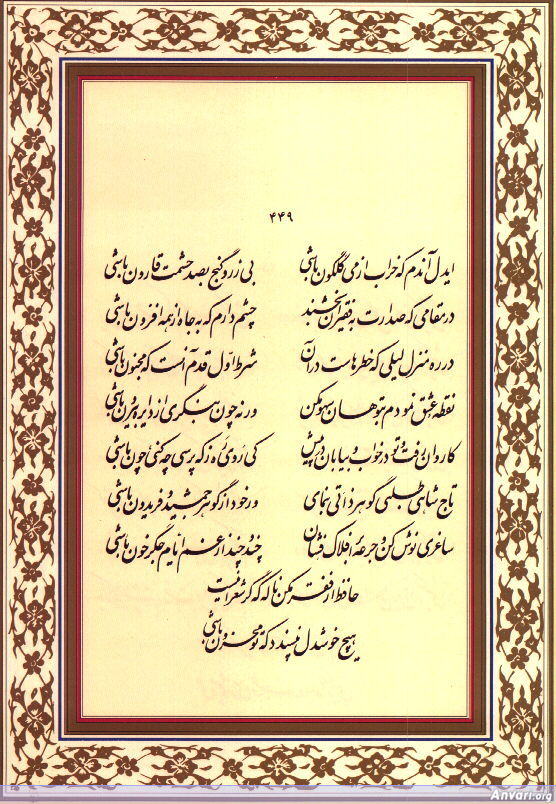 ۴۴۹
ایدل آندم که خراب از می گلگون باشی بی زر و گنج بصد حشمت قارون باشی
در مقامی که صدارت به فقیران بخشند چشم دارم که به جاه از همه افزون باشی
در ره منزل لیلی که خطرهاست در آن شرط اول قدم آنست که مجنون باشی
نقطهٔ عشق نمودم بتو هان سهو مکن ورنه چون بنگری از دایره بیرون باشی
کاروان رفت و تو در خواب و بیابان در پیش کی روی ره ز که پرسی چه کنی چون باشی
تاج شاهی طلبی گوهر ذاتی بنمای ور خود از گوهر جمشید و فریدون باشی
ساغری نوش کن و جرعه بر افلاک فشان چند و چند از غم ایام جگر خون باشی
حافظ از فقر مکن ناله که گر شعر اینست
هیچ خوشدل نپسندد که تو محزون باشی
Anvari.org